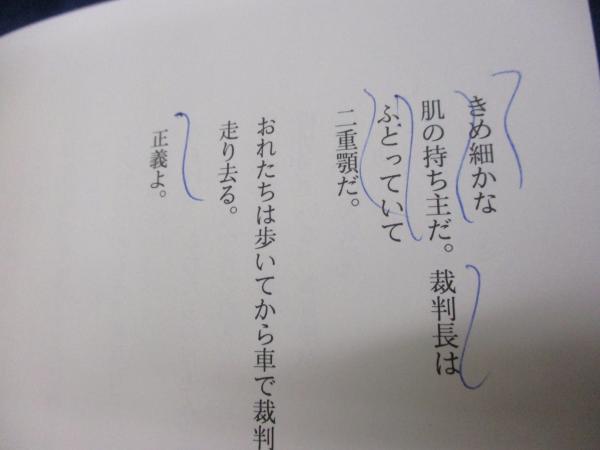 きめ細かな
肌の持ち主だ。裁判長は
ふとっていて
二重顎だ。
おれたちは歩いてから車で裁判
走り去る。
正義よ。